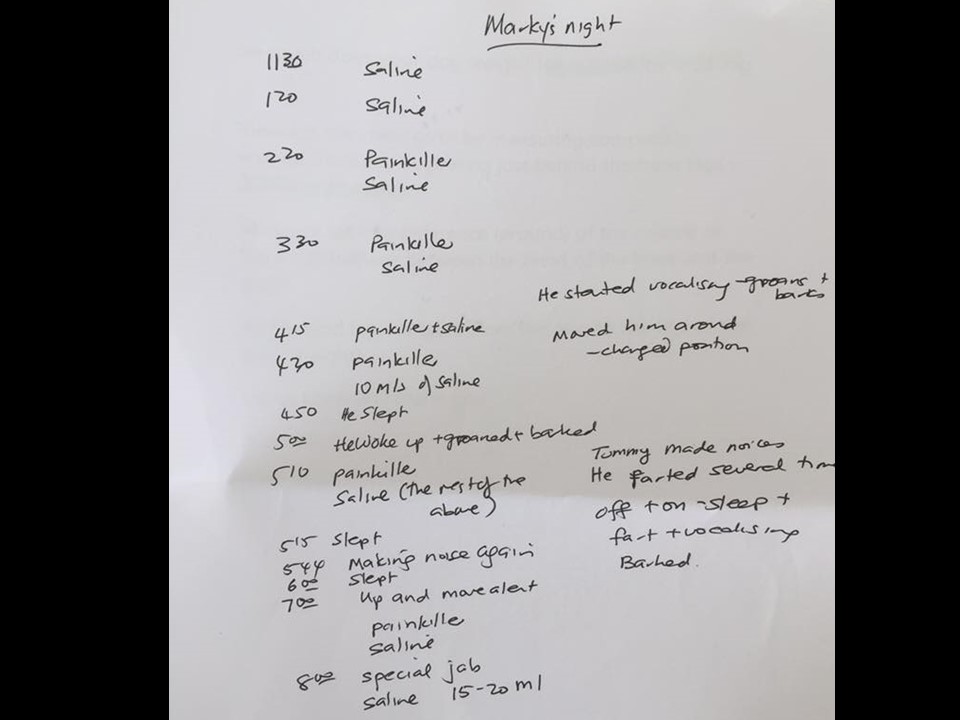 Marky's night
1130 saline
120 saline
220 Painkiller
saline
330 Painkiller
saline
He started vocalising - groans +
barks
415 painkiller + saline
Moved him around
- changed position
430 painkiller
10 mls of saline
450 He slept
500 He woke up + groaned + barked
510 painkiller
Saline (the rest of the
above)
Tummy made noices
He farted several time
off + on - sleep +
fart + vocalising
Barked.
515 slept
544 Making noise again
600 slept
700 Up and more alert
painkiller
saline
800 special jab
saline 15-20 ml